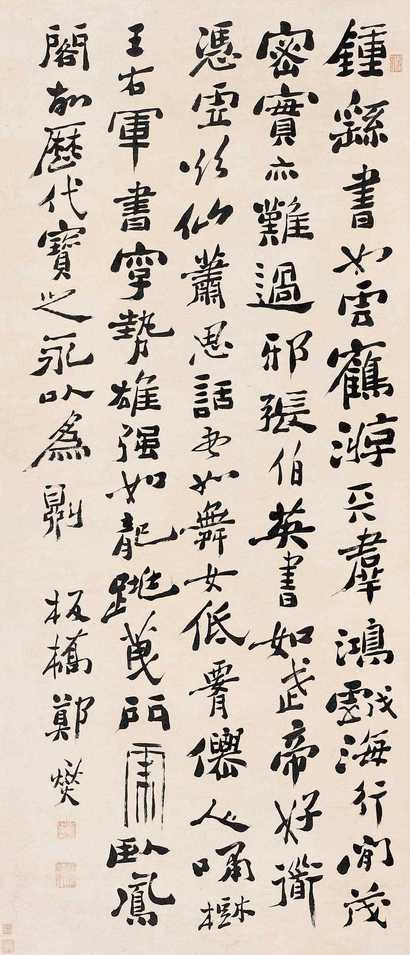 鍾繇書如雲鶴游天羣鴻戲海行間茂
密實亦難過邪張伯英書如武帝好道
憑虛欲仙蕭思話書如舞女低腰僊人嘯樹
王右軍書字勢雄强如龍跳天門虎臥鳳
閣故歷代寶之永以為訓 板橋鄭燮